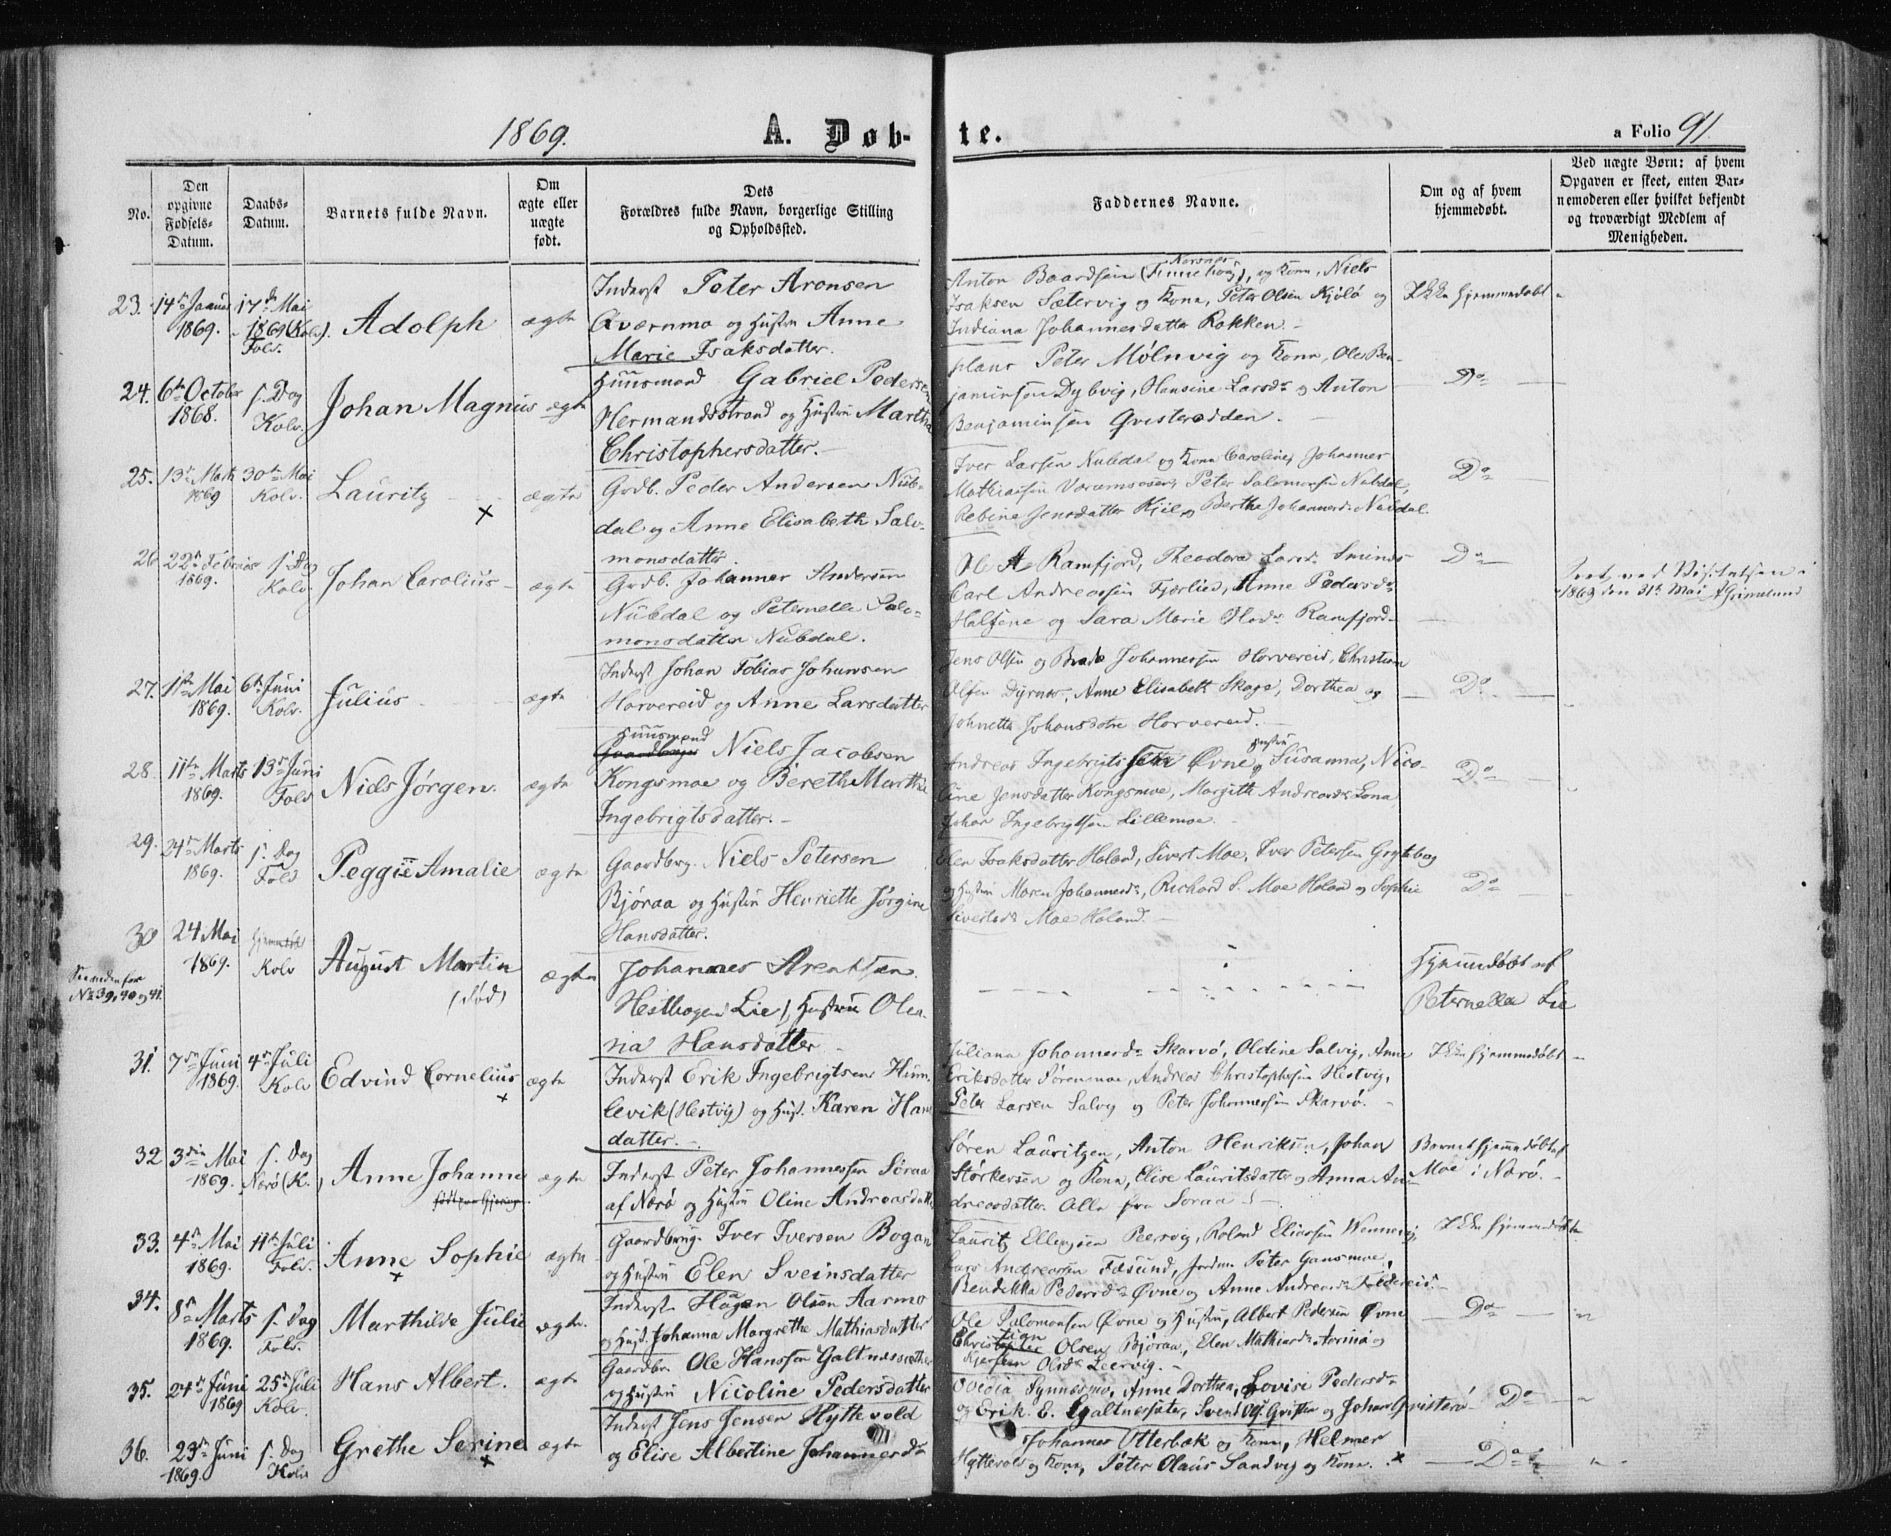 1869.
A. Døb-
te.
a Folio 91.
No.
Den
opgivne
Fødsels-
Datum.
Daabs-
Datum.
Barnets fulde Navn.
Om
ægte eller
uægte
født.
Dets
Forældres fulde Navn, borgerlige Stilling
og Opholdssted.
Faddernes Navne.
Om og af hvem
hjemmedøbt.
Ved uægte Børn: af hvem
Opgaven er skeet, enten Bar-
nemoderen eller hvilket bekjendt
og troværdigt Medlem af
Menigheden.
23. 14de Januar 17de Mai
1869. 1869 (Kolv).
Folv.
Adolph
ægte
Inderst Peter Aronsen
Qværnmo og Hustru Anne
Marie Isaksdatter.
Anton Baardsen og Kone, Niels
Isaksen Sætervig og Kone, Peter Olsen Kjølø og
Indiana Johannesdatter Rokken.
Ikke hjemmedøbt
24. 6te October s. Dag
1868. Kolv.
Johan Magnus
ægte
Huusmand Gabriel Pedersen
Hermandsstrand og Hustru Martha
Christophersdatter.
Peter Mølnvig og Kone, Ole Ben-
jaminsen Dybvig, Hansine Larsdr og Anton
Benjaminsen Qvisterødden.
Do
25. 13de Marts 30te Mai
1869 Kolv.
Lauritz
×
ægte
Grdb. Peder Andersen Nub-
dal og Anne Elisabeth Salo-
monsdatter.
Iver Larsen Nubdal og Kone Caroline, Johannes
Mathiasen, Peter Salomonsen Nubdal,
Rebina Jensdatter Kjil og Berthe Johannesd. Nubdal.
Do
26 22de Februar s. Dag
1869. Kolv.
Johan Carolius
ægte
Grdb. Johannes Andersen
Nubdal og Peternelle Salo-
monsdatter Nubdal.
Ole A Ramfjord, Theodora Larsd.
Carl Andreassen Fjærlied, Anne Pedersdr
og Sara Marie Olsdr Ramfjord
Do
Seet ved Visitatsen i
1869 den 31te Mai
27. 11te Mai 6te Juni
1869. Kolv.
Julius
ægte
Inderst Johan Tobias Johansen
Horvereid og Anne Larsdatter
Jens Olsen og Johannessen Horvereid, Christian
Olsen Dyrnes, Anne Elisabeth Skage, Dorthea og
Johnette Johansdotre Horvereid.
Do
28. 11te Marts 13de Juni
1869. Folv
Niels Jørgen.
ægte
Huusmand
Gaardbruger Niels Jacobsen
Kongsmoe og Bereth Marthe
Ingebrigtsdatter.
Andreas Ingebrigtsen Øvne og Hustru Susanna, Nico-
line Jensdatter Kongsmoe, Margith Andreasdr
Johan Ingebrigtsen Lillemoe.
Do
29. 24de Marts s. Dag
1869. Folv
Peggie Amalie
ægte
Gaardbrg. Niels Petersen
Bjøraa og Hustru Henriette Jørgine
Hansdatter.
Elen Isaksdatter Høland, Sivert Moe, Iver Petersen Grytbog
og Hustru Maren Johannesdr, Richard S. Moe Høland og Sophie
Sivertsdr Moe Høland.
Do
30 24 Mai hjemmedøbt
1869. Kolv
Se indenfor
No 39, 40 og 41.
August Martin
(død)
ægte
Johannes Arentsen
Hesthagen (Lie) Hustru Olea-
na Hansdatter
Hjemmedøbt af
Peternelle Lie
31. 7de Juni 4de Juli
1869. Kolv
Edvind Cornelius
×
ægte
Inderst Erik Ingebrigtsen Hum-
levik (Hestvig) og Hust. Karen Hans
datter.
Juliana Johannesdr Skarvø, Oldine Salvig, Anne
Eriksdatter Sørenmoe, Andreas Christophersen Hestvig,
Peter Larsen Salvig og Peter Johannessen Skarvø.
Ikke hjemmedøbt
32 3die Mai s. Dag
1869. Nærø (K.)
Anne Johanne
ægte
Inderst Peter Johannessen Søraa
af Nærø og Hustru Oline Andreasdatt
Søren Lauritzen, Anton Henriksen, Johan
Størkersen og Kone, Elise Lauritsdatter og Anna An-
dreasdatter. Alle fra Søraa
Barnet hjemmedøbt af
Moe i Nærø.
33. 4de Mai 11te Juli
1869. Folv.
Anne Sophie
×
ægte
Gaardbrug. Iver Iversen Bogan
og Hustru Elen Sveinsdatter
Lauritz Ellingsen Peervig, Roland Eliassen Wennevig
Lars Andreassen Flesund, Peter Gansmoe,
Bendikka Pedersdr Øvne og Anne Andreasdr
Ikke hjemmedøbt
34. 8de Marts s. Dag
1869. Folv.
Marthilde Julie
ægte.
Inderst Hagen Olsen Aarmo
og Hust. Johanna Margrethe Mathiasdatter
Ole Salomonsen Øvne og Hustru, Albert Pedersen Øvne
Christian Olsen Bjøraa, Elen Mathiasdr Aarmo og
Olsdr Leervig.
Do
35. 24de Juni 25de Juli
1869 Kolv.
Hans Albert.
ægte
Gaardbr. Ole Hanssen Galtnessæther
og Hustru Nicoline Pedersdatter
Ovedia Synnesmo, Anne Dorthea, Lovise Pedersdr
og Erik E. Galtnessæter, Svend Ols. og Johan Qvisterø
Do
36. 23de Juni s. Dag
1869. Kolv
Grethe Serine
×
ægte
Inderst Jens Jensen Hyttevold
og Elise Albertine Johannesdr
Johannes Otterbæk og Kone, Helmer
Hyttevold og Kone, Peter Olaus Sandvig og Kone. ×
Do